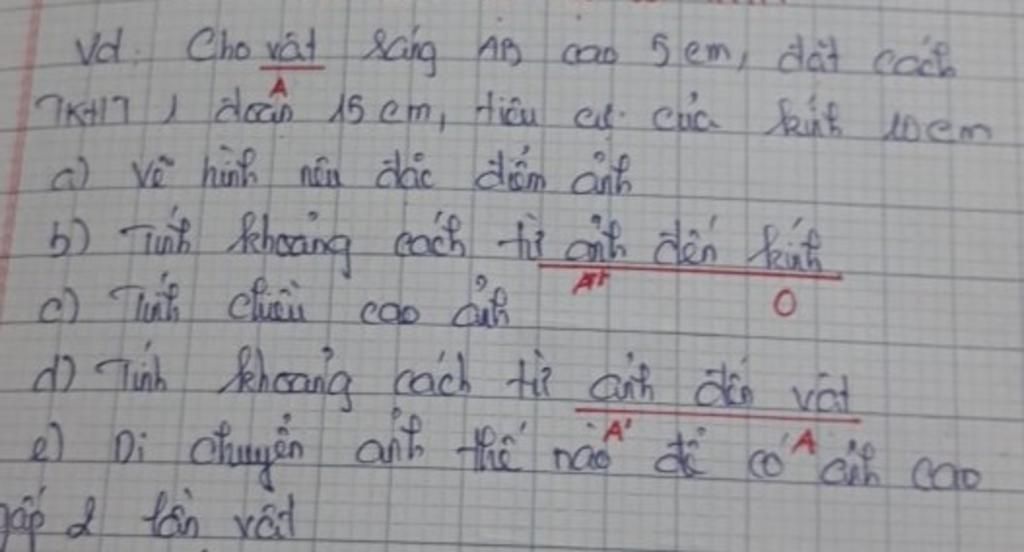 Vd. Cho vật sáng AB cao 5 cm, đặt cách
A
TKHT 1 đoạn 15 cm, tiêu cự của kính 10cm
a) Vẽ hình nêu đặc điểm ảnh
b) Tính khoảng cách từ ảnh đến kính
A' O
c) Tính chiều cao ảnh
d) Tính khoảng cách từ ảnh đến vật
A' A
e) Di chuyển ảnh thế nào để có ảnh cao
gấp 2 lần vật